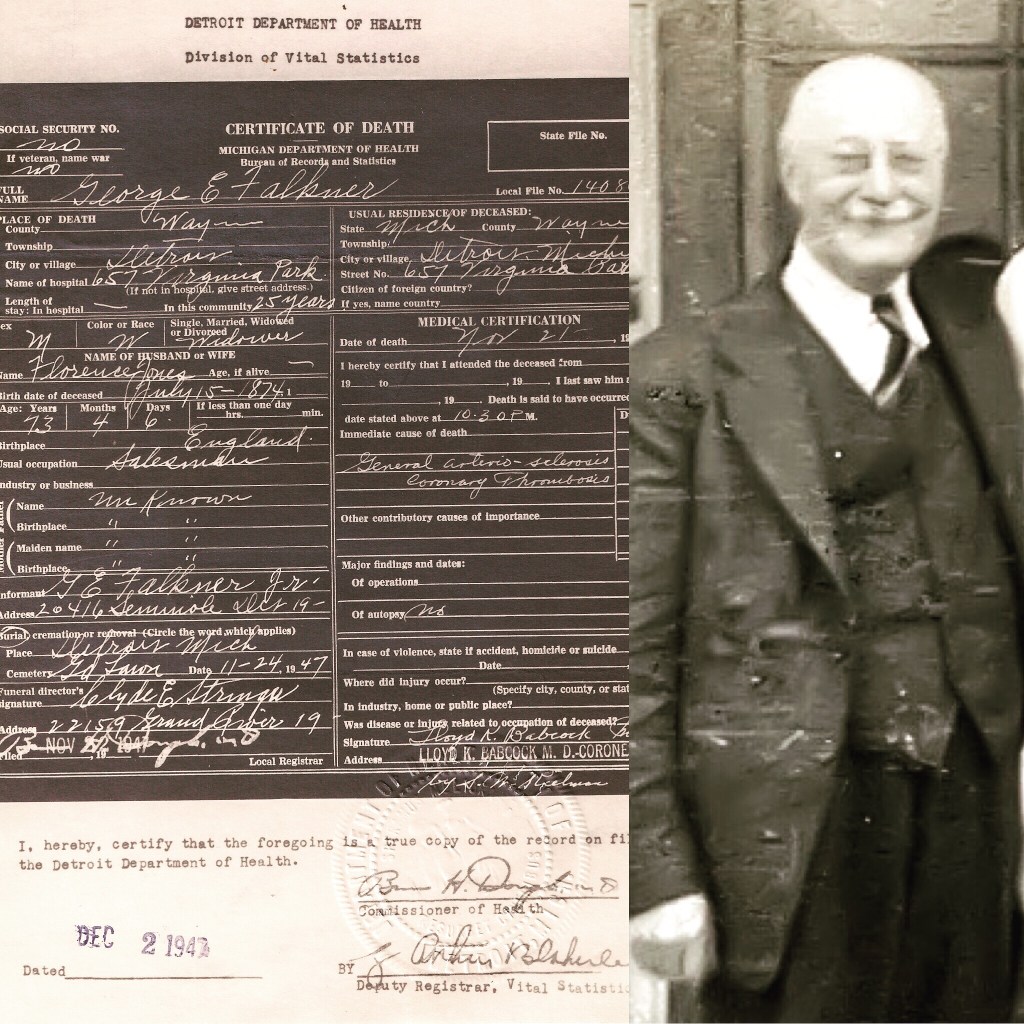 DETROIT DEPARTMENT OF HEALTH
Division of Vital Statistics
SOCIAL SECURITY NO.
no
If veteran, name war
no
CERTIFICATE OF DEATH
MICHIGAN DEPARTMENT OF HEALTH
Bureau of Records and Statistics
State File No.
FULL NAME George E Falkner
Local File No. 1408
PLACE OF DEATH
County Wayne
Township
City or village Detroit
Name of hospital 657 Virginia Park
(If not in hospital, give street address.)
Length of stay: In hospital In this community 25 years
USUAL RESIDENCE OF DECEASED:
State Mich County Wayne
Township
City or village Detroit
Street No. 657 Virginia Par
Citizen of foreign country?
If yes, name country
ex M
Color or Race W
Single, Married, Widowed or Divorced Widower
NAME OF HUSBAND OR WIFE
Name Florence Jones Age, if alive —
Birth date of deceased July 15 - 1874
Age: Years 73 Months 4 Days 6 If less than one day hrs. min.
Birthplace England
Usual occupation Salesman
Industry or business
Name Un Known
Birthplace " "
Maiden name " "
Birthplace " "
Informant G E Falkner Jr.
Address 20416 Seminole Det 19-
Burial, cremation or removal (Circle the word which applies)
Place Detroit Mich
Cemetery Date 11-24, 1947
Funeral director's signature Clyde E
Address 22159 Grand River 19
NOV 1947
Filed , 19
Local Registrar
MEDICAL CERTIFICATION
Date of death Nov 21 , 19
I hereby certify that I attended the deceased from
19 to , 19 , I last saw him a
, 19 . Death is said to have occurred
date stated above at 10:30 P M.
Immediate cause of death
General arterio-sclerosis
Coronary Thrombosis
Other contributory causes of importance
Major findings and dates:
Of operations
Of autopsy no
In case of violence, state if accident, homicide or suicide
Date
Where did injury occur?
(Specify city, county, or stat
In industry, home or public place?
Was disease or injury related to occupation of deceased?
Signature Lloyd K. Babcock
Address LLOYD K. BABCOCK M. D-CORONE
by
I, hereby, certify that the foregoing is a true copy of the record on fil
the Detroit Department of Health.
Commissioner of Health
DEC 2 1947
Dated
BY
Deputy Registrar, Vital Statistic